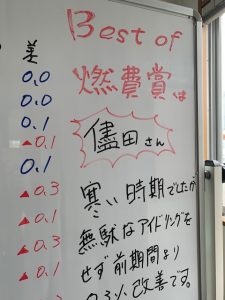 Best of
燃費賞は
儘田さん
寒い時期でしたが
無駄なアイドリングを
せず前期間より
0.3%改善です。
差
0.0
0.0
0.1
▲0.1
0.1
▲0.3
▲0.1
▲0.3
▲0.1